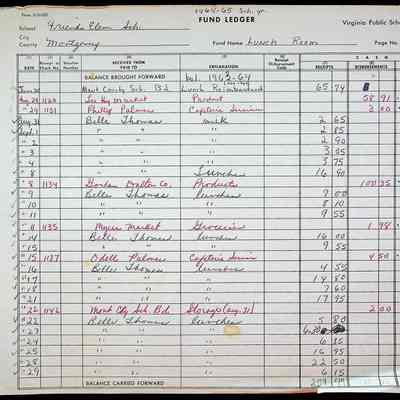 1964-65 Sch. yr.
School Friends Elem Sch. FUND LEDGER Virginia Public Sch
City
County Montgomery Fund Name Lunch Room Page No.
(1) (2) (3) (4) (5) (6) (7) (8)
DATE RECEIVED FROM PAID TO EXPLANATION RECEIPTS DISBURSEMENTS
CASH
BALANCE BROUGHT FORWARD bal. 1963-64
June 30 Mont County Sch. Bd. Lunch Reimbursement 65 74
Aug 24 1120 Market Product 58 91
" 24 1121 Phillip Palmer Captain's Service 2 00
Aug 31 Belle Thomas milk 2 65
Sept 1 " " " 2 85
" 2 " " " 2 90
" 3 " " " 3 05
" 4 " " " 3 75
" 8 " " Lunches 16 90
" 8 1134 Dalton Co. Products 100 35
" 9 Belle Thomas lunches 9 00
" 10 " " " 8 10
" 11 " " " 9 55
" 11 1135 Myers Market Groceries 1 98
" 14 Belle Thomas lunches 16 00
" 15 " " " 9 55
" 15 1137 Odell Palmer Captain's Service 4 50
" 16 Belle Thomas lunches 4 55
" 17 " " " 14 80
" 18 " " " 7 60
" 21 " " " 17 95
" 22 1142 Mont Cty Sch. Bd. Storage (Aug. 31) 2 00
" 22 Belle Thomas lunches 5 80
" 23 " " "
" 24 " " " 6 15
" 25 " " " 16 95
" 28 " " " 22 50
" 29 " " " 6 15
BALANCE CARRIED FORWARD